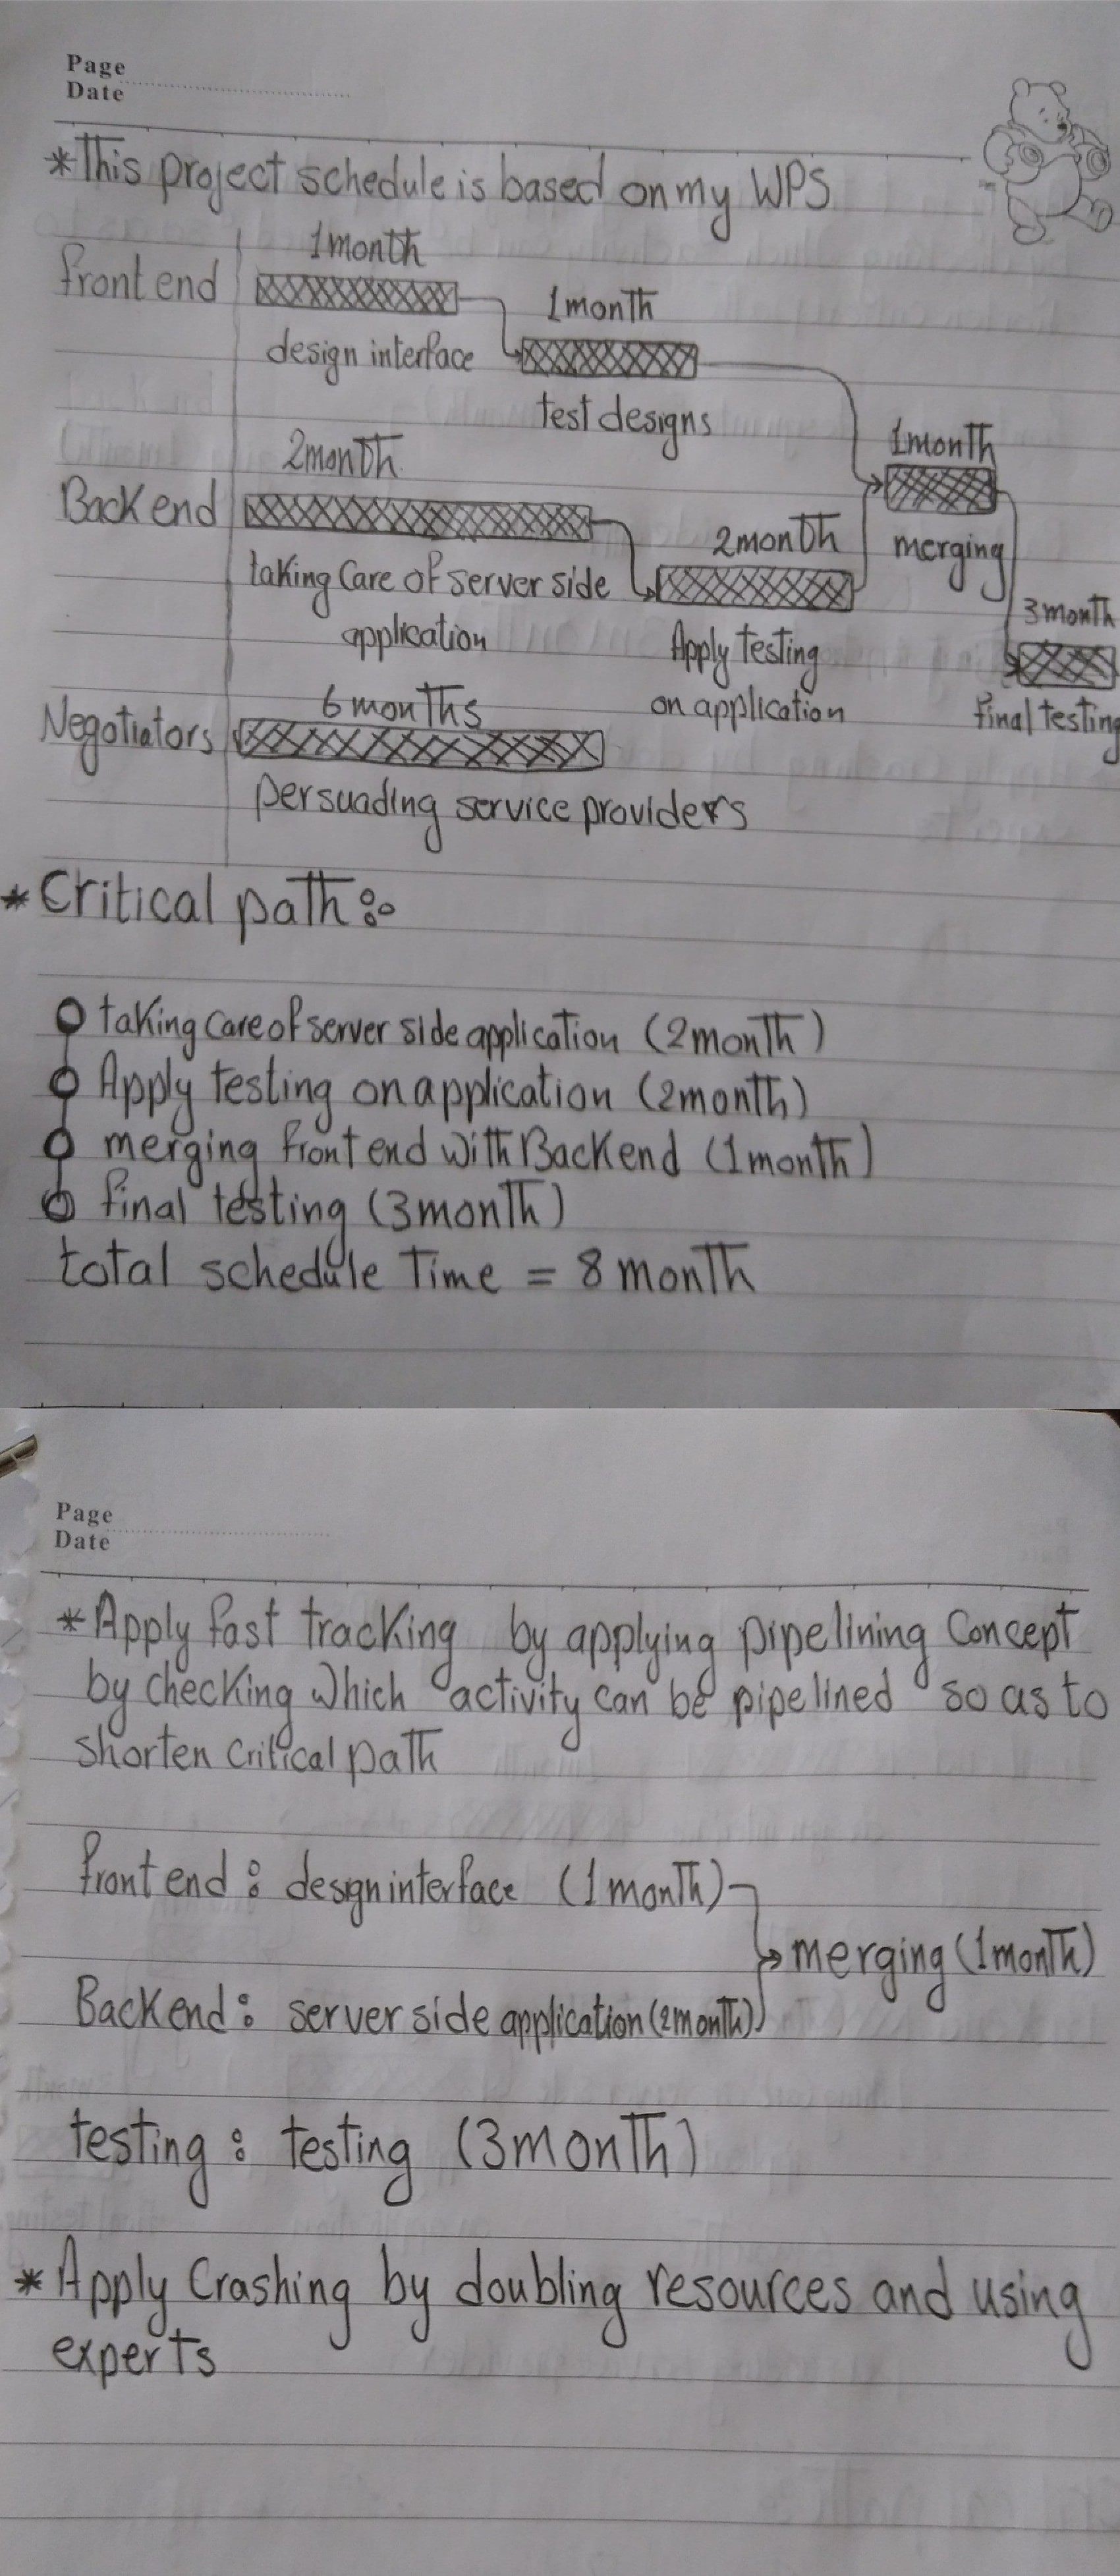 Page
Date
*This project schedule is based on my WPS
1month
front end
1month
design interface
test designs
1month
2month
Back end
2month
merging
taking care of server side
application
3month
Apply testing
on application
final testing
6 months
Negotiators
persuading service providers
* Critical path :-
taking care of server side application (2month)
Apply testing on application (2month)
merging front end with Backend (1month)
final testing (3month)
total schedule Time = 8 month
Page
Date
*Apply fast tracking by applying pipelining concept
by checking which activity can be pipelined so as to
shorten critical path
front end : design interface (1month)
merging (1month)
Backend : server side application (2month)
testing : testing (3month)
* Apply Crashing by doubling resources and using
experts